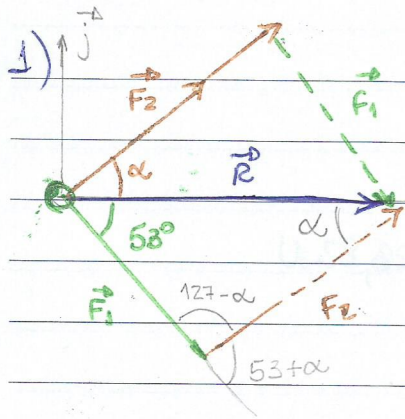 1)
j⃗
F⃗₂
F⃗₁
α
R⃗
53°
α
F⃗₁
127-α
F₂
53+α